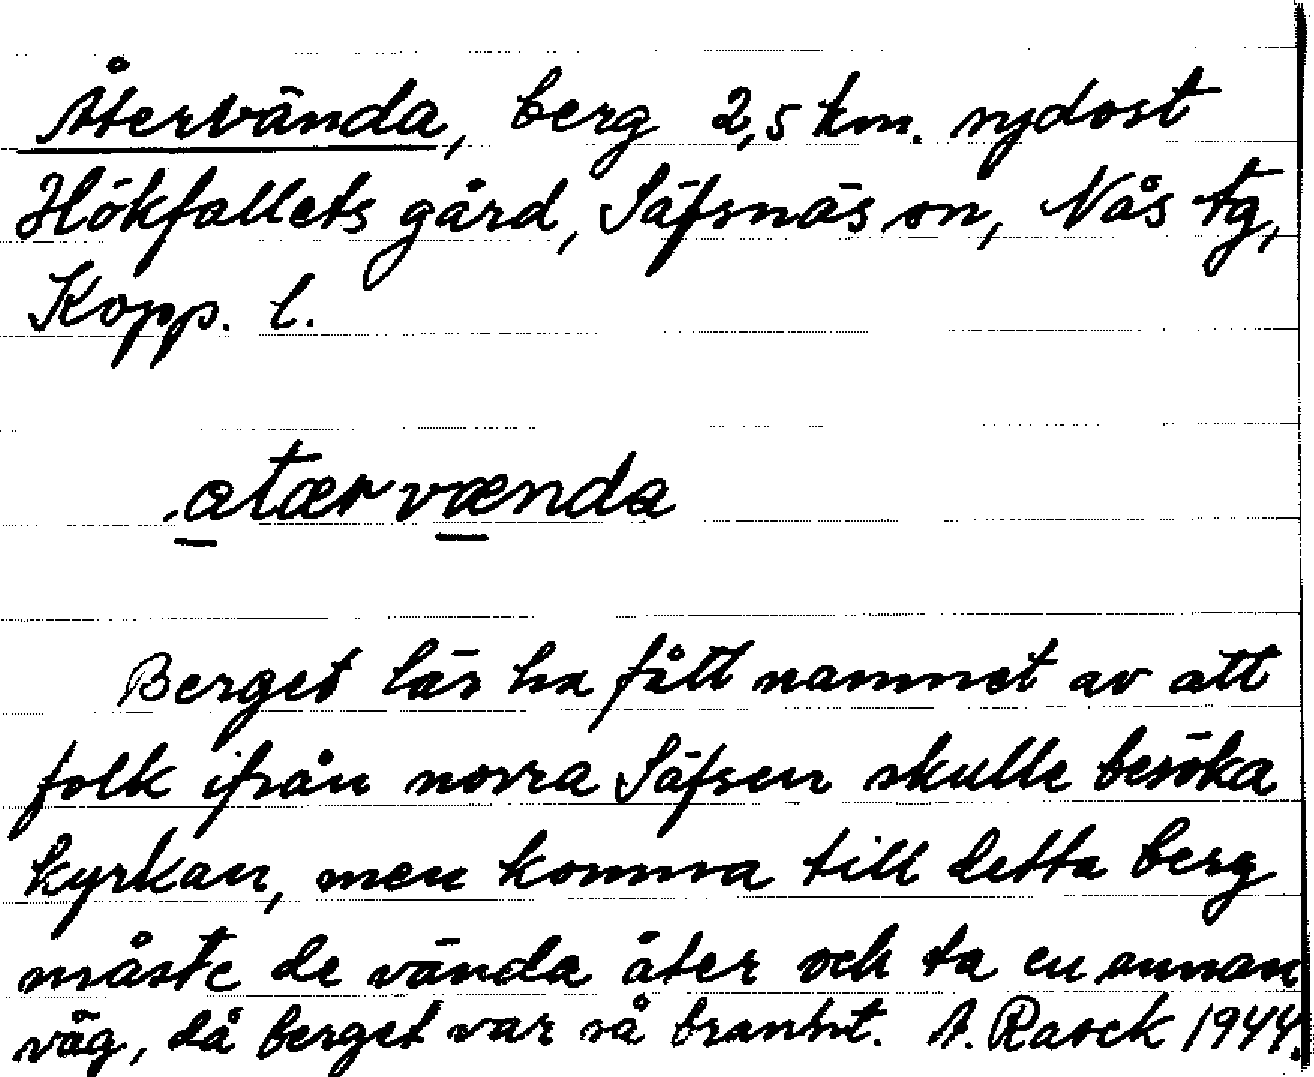 Återvända, berg 2,5 km. sydost
Hökfallets gård, Säfsnäs sn, Nås tg,
Kopp. l.
.atærvænda
Berget lär ha fått namnet av att
folk ifrån norra Säfsen skulle besöka
kyrkan, men komna till detta berg
måste de vända åter och ta en annan
väg, då berget var så brant. A. Raock 1944.